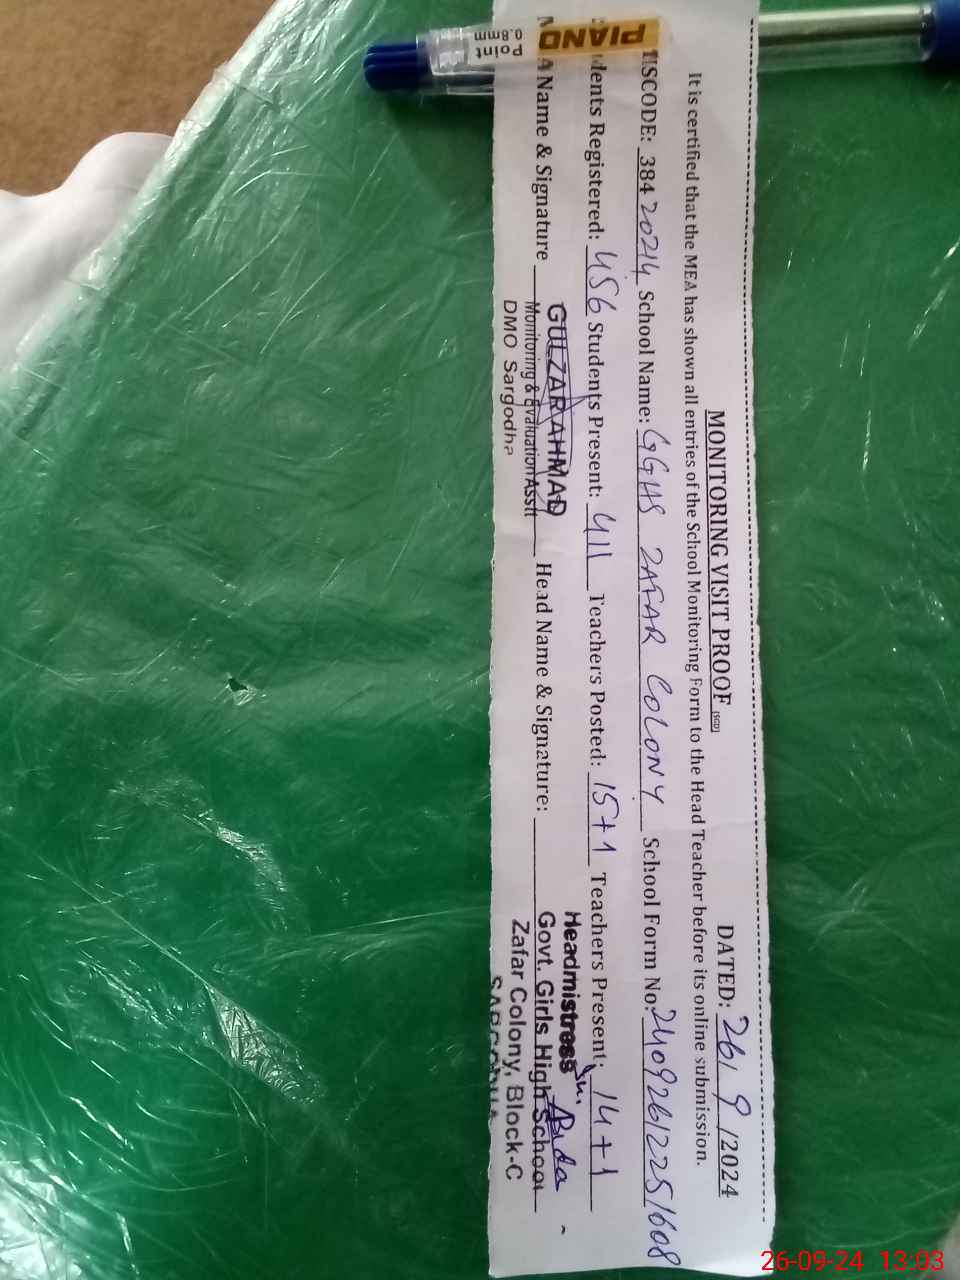 MONITORING VISIT PROOF (SED) DATED: 26/9/2024
It is certified that the MEA has shown all entries of the School Monitoring Form to the Head Teacher before its online submission.
ISCODE: 38420214 School Name: GGHS ZAFAR COLONY School Form No: 24092612251608
dents Registered: 456 Students Present: 411 Teachers Posted: 15+1 Teachers Present: 14+1
A Name & Signature Head Name & Signature:
GULZAR AHMAD
Monitoring & Evaluation Asstt
DMO Sargodha
Headmistress
Govt. Girls High School
Zafar Colony, Block-C
SARGODHA
PIANO
Point
0.8mm
26-09-24 13:03